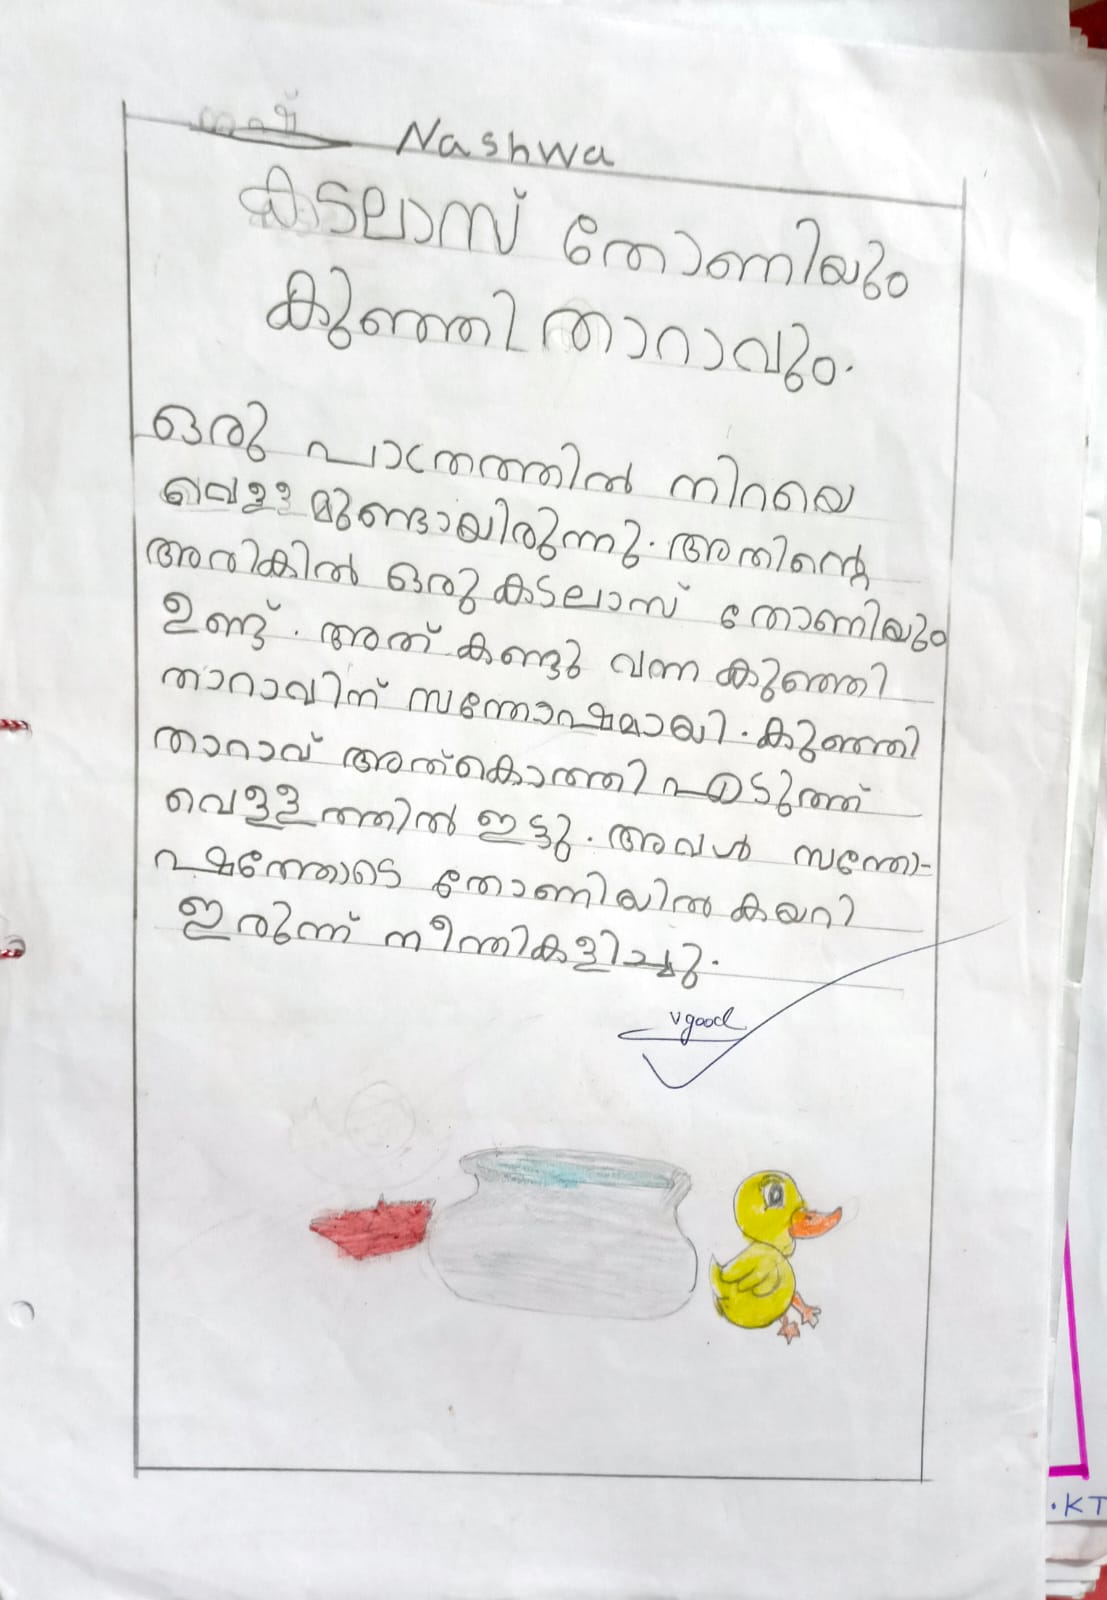 Nashwa
കടലാസ് തോണിയും
കുഞ്ഞി താറാവും.
ഒരു പാത്രത്തിൽ നിറയെ
വെള്ള മുണ്ടായിരുന്നു. അതിന്റെ
അരികിൽ ഒരു കടലാസ് തോണിയും
ഉണ്ട്. അത് കണ്ടു വന്ന കുഞ്ഞി
താറാവിന് സന്തോഷമായി. കുഞ്ഞി
താറാവ് അത്കൊത്തി എടുത്ത്
വെള്ളത്തിൽ ഇട്ടു. അവൾ സന്തോ-
ഷത്തോടെ തോണിയിൽ കയറി
ഇരുന്ന് നീന്തികളിച്ചു.
v good
.KT